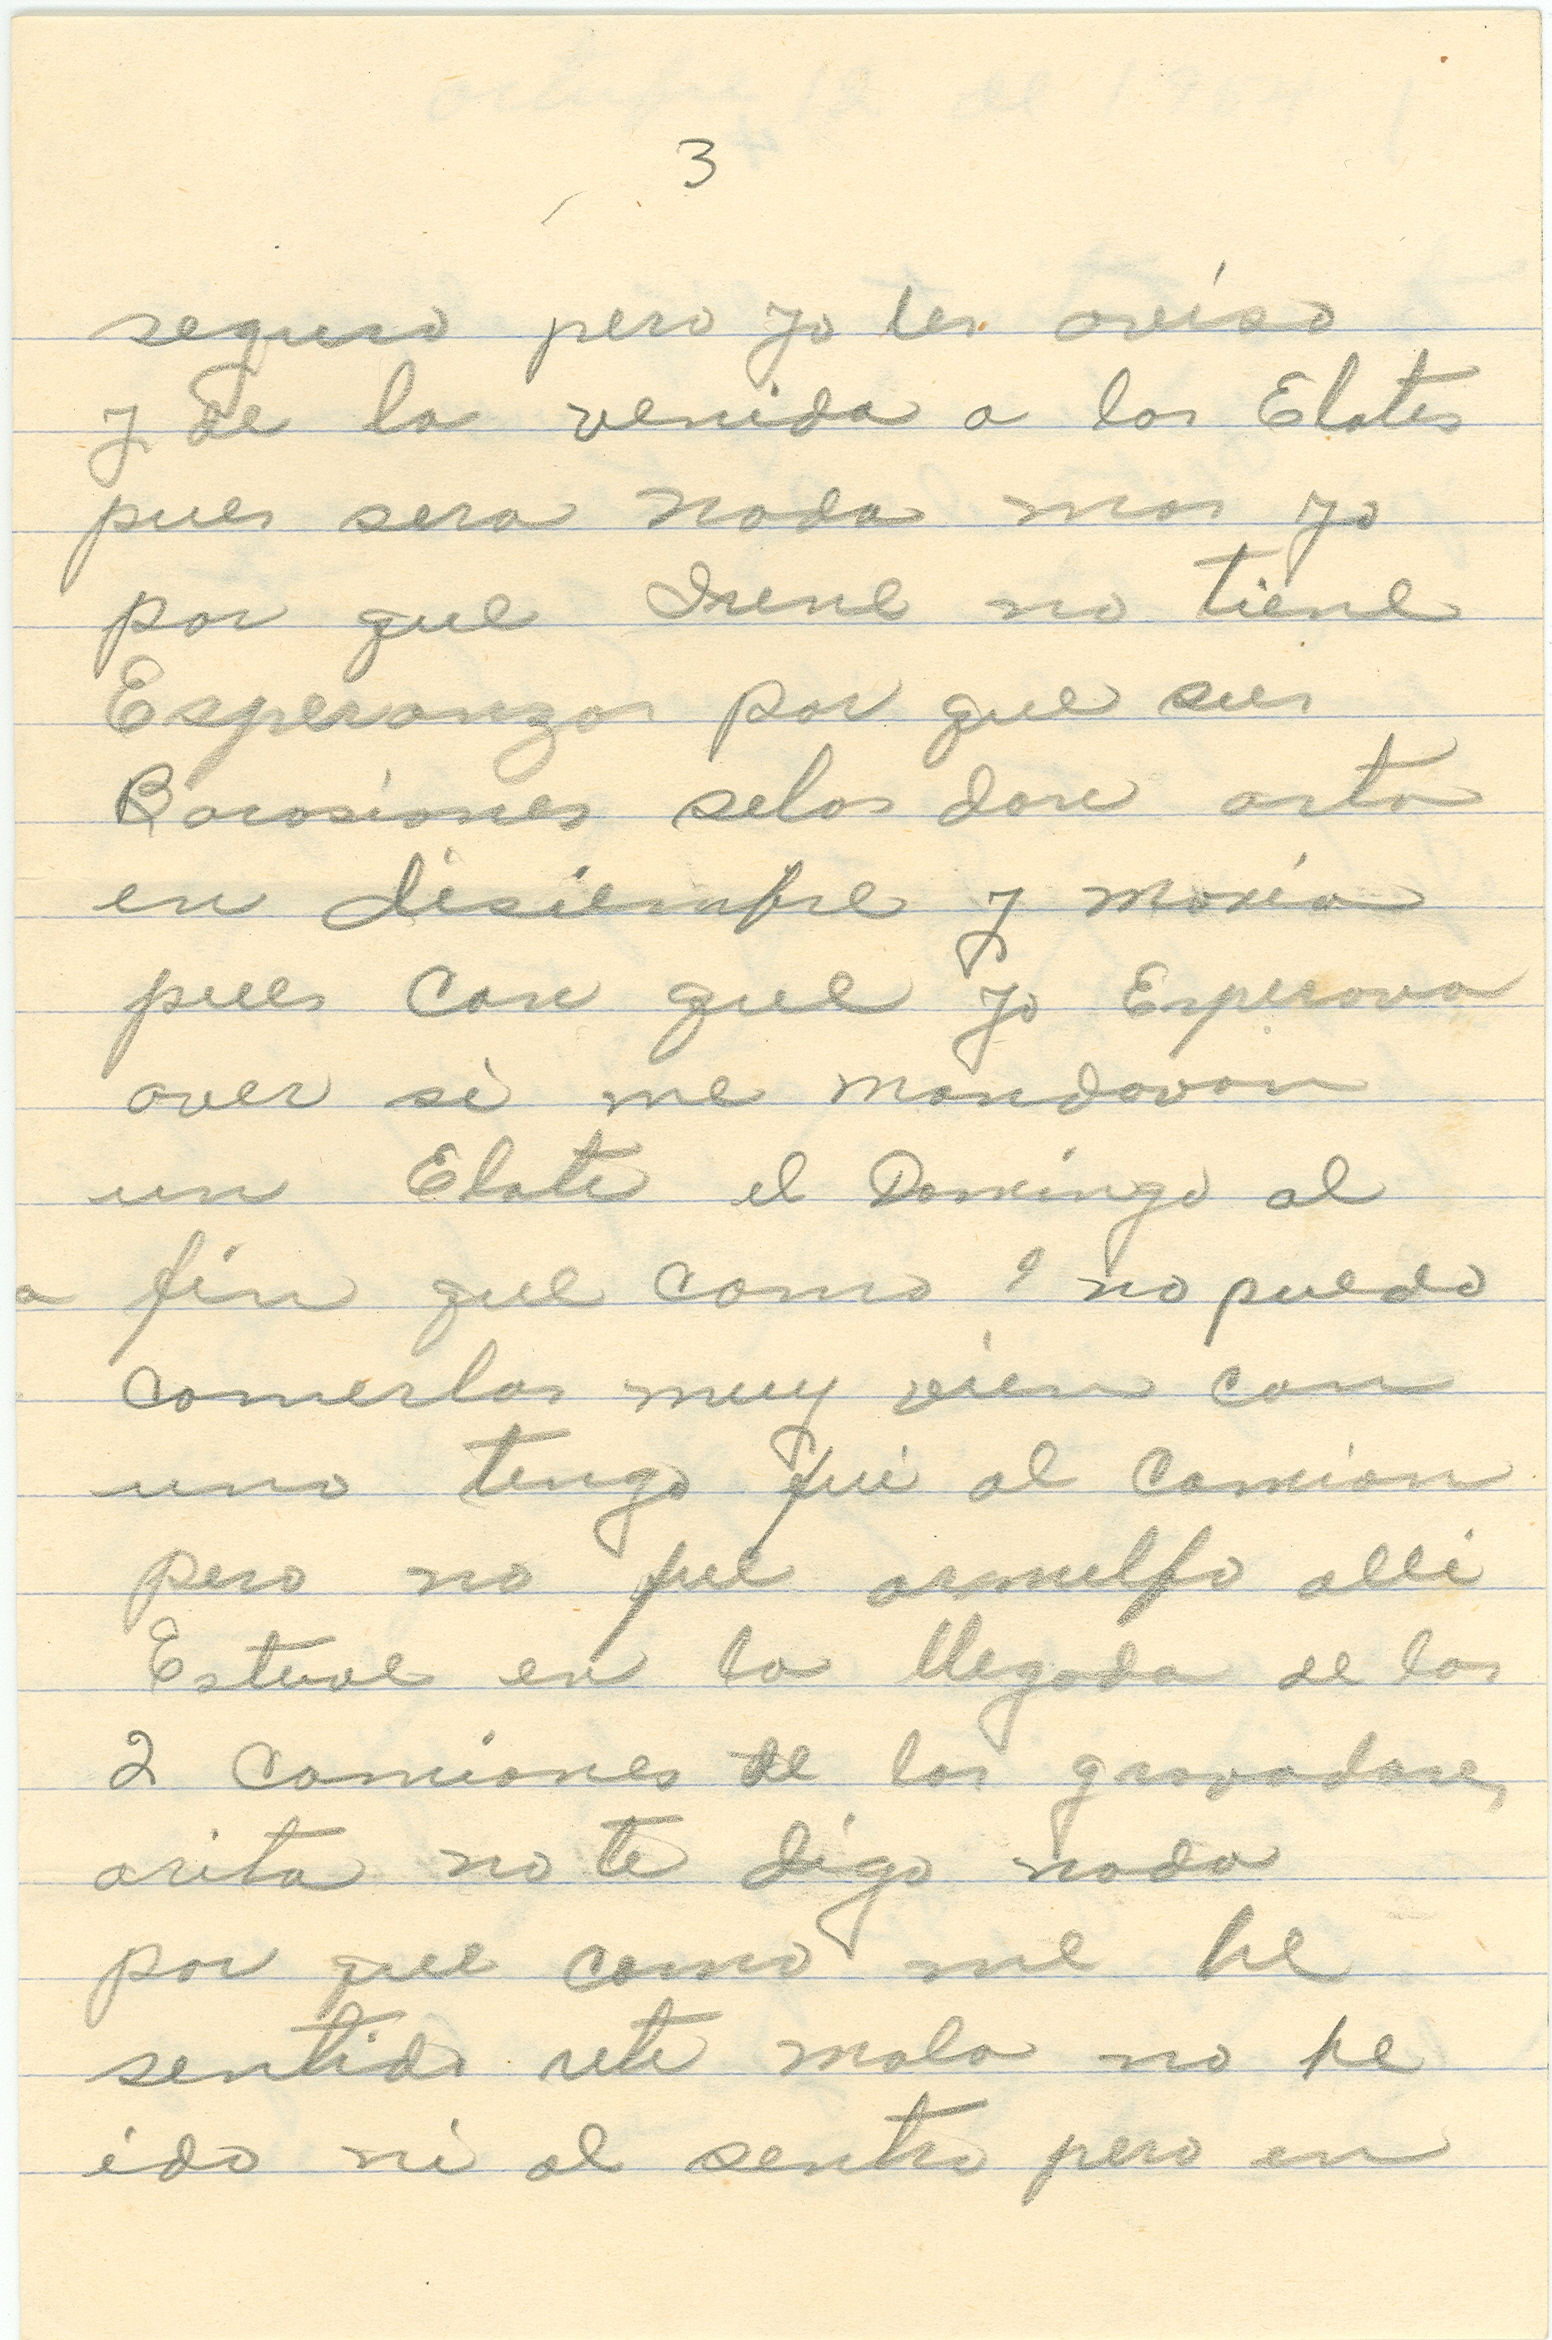 3
seguro pero yo les aviso
y de la venida a los Elotes
pues sera nada mas yo
por que Irene no tiene
Esperanzas por que sus
Bacasiones selas dan asta
en disiembre y maria
pues con que yo Esperava
aver si me mandavan
un Elote el Domingo al
a fin que como no puedo
comerlos muy vien con
uno tengo fui al camion
pero no fue arnulfo alli
Estuve en la llegada de los
2 camiones de los gravadores
orita no te digo nada
por que como me he
sentido rete mala no he
ido ni al sentro pero en